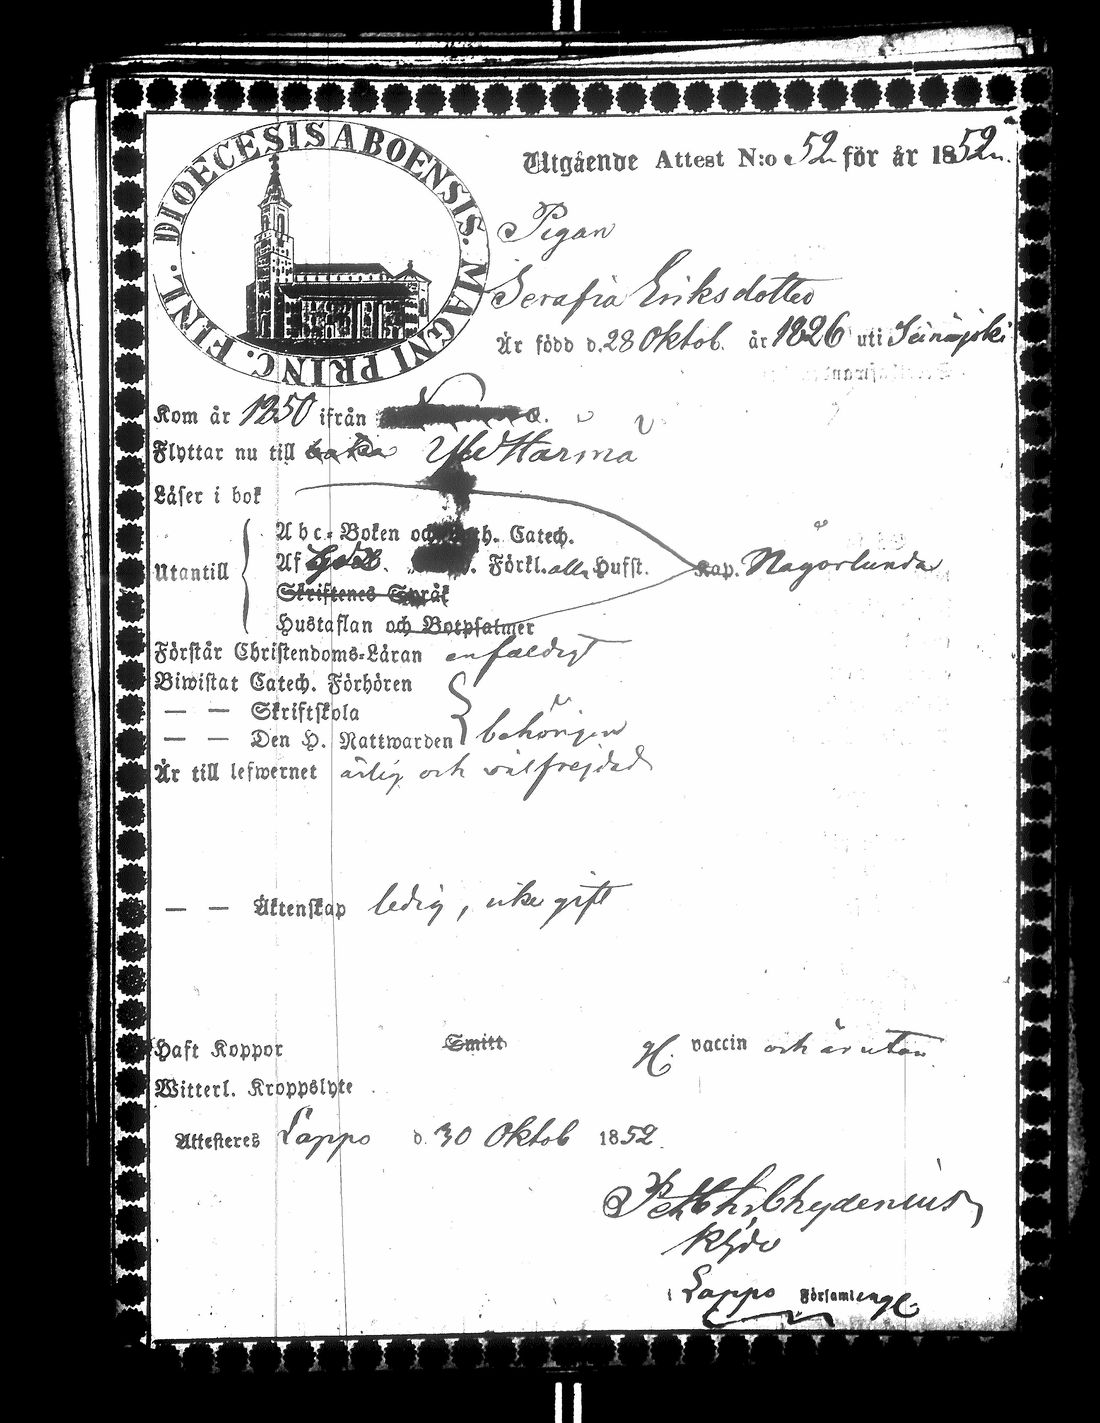 DIOECESIS ABOENSIS. MAGNI PRINC. FINL.
Utgående Attest N:o 52 för år 1852.
Pigan
Serafia Eriksdotter
Är född d. 28 Oktob. år 1826 uti Seinäjoki
Kom år 1850 ifrån
Flyttar nu till Härmä
Läser i bok
Utantill
Abc-Boken och Luth. Catech.
Af Förkl. alla Hufst. Kap. Någorlunda
Skriftenes Språk
Hustaflan och Botpsalmer
Förstår Christendoms-Läran enfaldigt
Biwistat Catech. Förhören
— — Skriftskola
— — Den H. Nattwarden behörigen
Är till lefwernet ärlig och välfrejdad
— — Äktenskap ledig, icke gift
Haft Koppor Smitt vaccin och är utan
Witterl. Kroppslyte
Attesteres Lappo d. 30 Oktob 1852.
Chydenius
i Lappo Församling